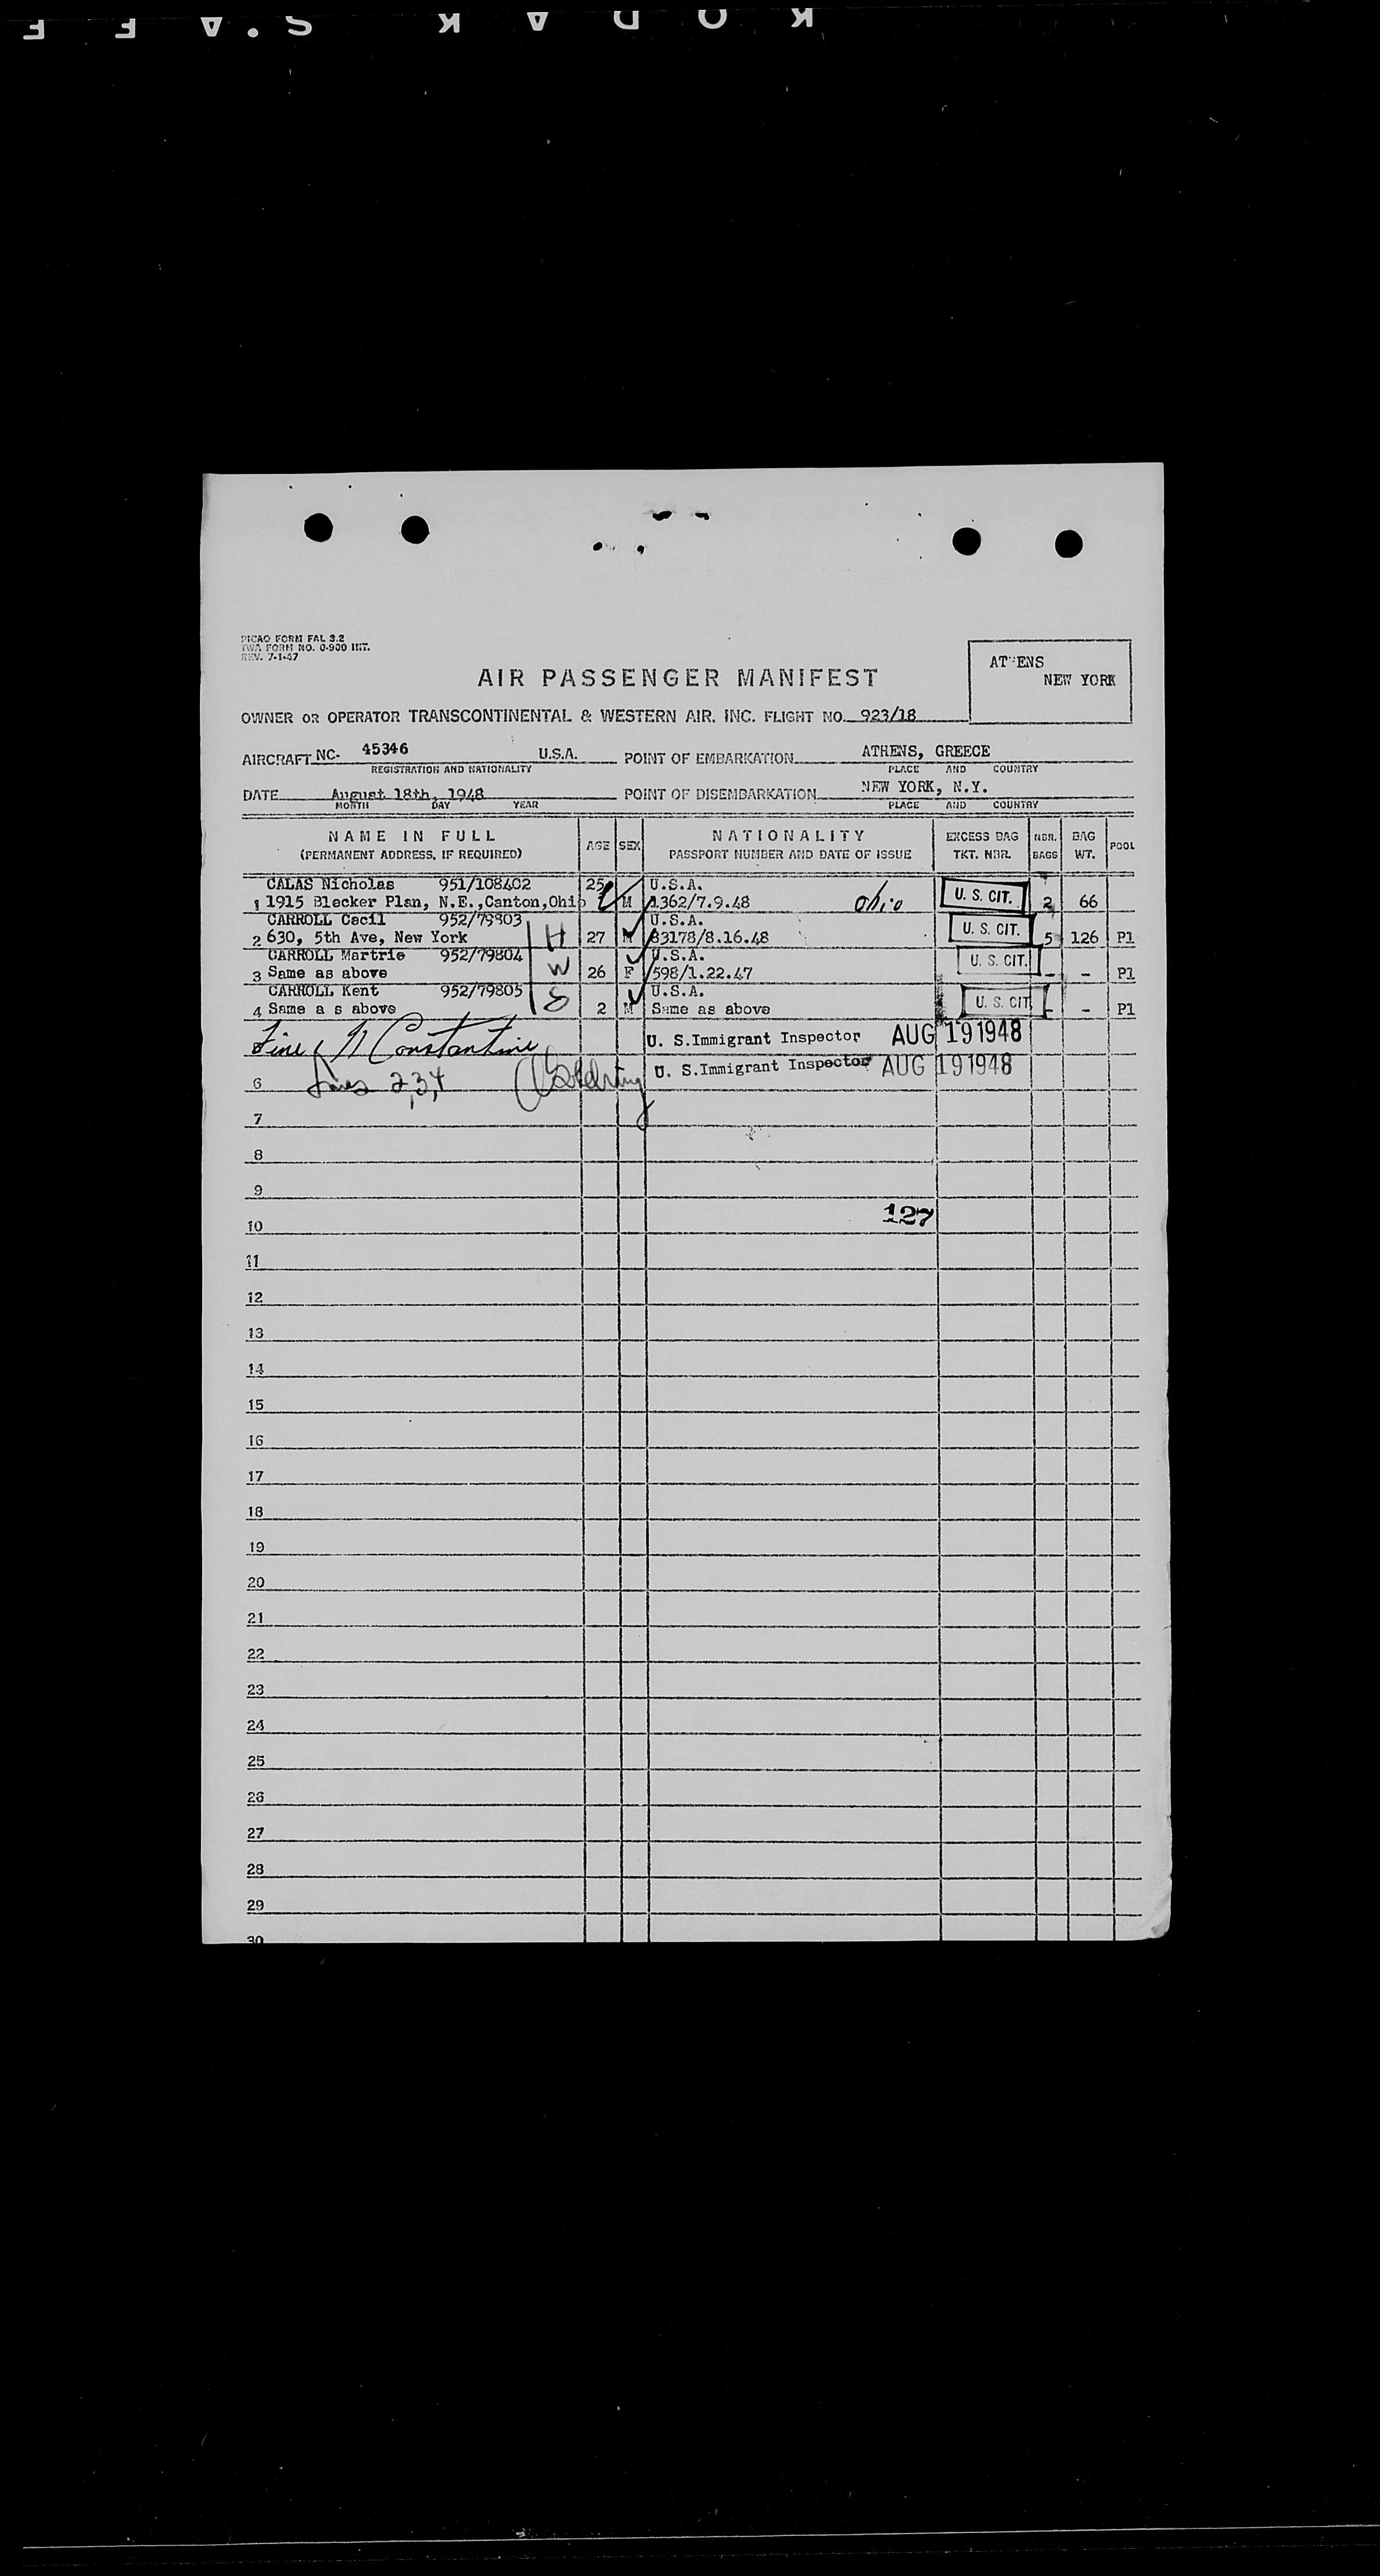 KODAK S.AFF
PICAO FORM FAL 3.2
TWA FORM NO. 0-900 INT.
REV. 7-1-47
ATHENS
NEW YORK
AIR PASSENGER MANIFEST
OWNER OR OPERATOR TRANSCONTINENTAL & WESTERN AIR, INC. FLIGHT NO. 923/18
AIRCRAFT NC- 45346 U.S.A. POINT OF EMBARKATION ATHENS, GREECE
REGISTRATION AND NATIONALITY PLACE AND COUNTRY
DATE August 18th, 1948 POINT OF DISEMBARKATION NEW YORK, N.Y.
MONTH DAY YEAR PLACE AND COUNTRY
NAME IN FULL AGE SEX NATIONALITY EXCESS BAG NBR. BAG POOL
(PERMANENT ADDRESS, IF REQUIRED) PASSPORT NUMBER AND DATE OF ISSUE TKT. NBR. BAGS WT.
CALAS Nicholas 951/108402 25 U.S.A.
1 1915 Blecker Plan, N.E.,Canton,Ohio M 1362/7.9.48 Ohio U. S. CIT. 2 66
CARROLL Cecil 952/79803 U.S.A.
2 630, 5th Ave, New York H 27 M 83178/8.16.48 U. S. CIT. 5 126 P1
CARROLL Martrie 952/79804 U.S.A.
3 Same as above W 26 F 598/1.22.47 U. S. CIT. - - P1
CARROLL Kent 952/79805 U.S.A.
4 Same a s above S 2 M Same as above U. S. CIT - - P1
Line 1 N Constantine U. S.Immigrant Inspector AUG 19 1948
6 Lines 2,3,4 U. S.Immigrant Inspector AUG 19 1948
7
8
9
127
10
11
12
13
14
15
16
17
18
19
20
21
22
23
24
25
26
27
28
29
30